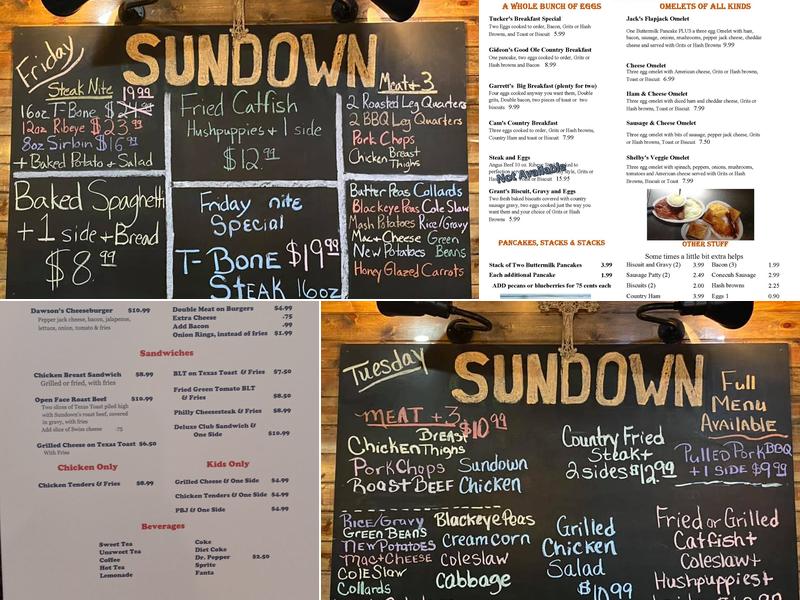 Friday
SUNDOWN
Steak Nite
19.99
16oz T-Bone
12oz Ribeye $23.99
8oz Sirloin $16.91
+ Baked Potato + Salad
Fried Catfish
Hushpuppies + 1 side
$12.99
Meat + 3
2 Roasted Leg Quarters
2 BBQ Leg Quarters
Pork Chops
Chicken Breast
Thighs
Baked Spaghetti
+ 1 side + Bread
$8.99
Friday nite
Special
T-Bone $19.99
Steak 16oz
Butter Peas Collards
Blackeye Peas Cole Slaw
Mash Potatoes Rice/Gravy
Mac + Cheese Green
New Potatoes Beans
Honey Glazed Carrots
A WHOLE BUNCH OF EGGS
Tucker's Breakfast Special
Two Eggs cooked to order, Bacon, Grits or Hash
Browns, and Toast or Biscuit 5.99
Gideon's Good Ole Country Breakfast
One pancake, two eggs cooked to order, Grits or
Hash browns and Bacon 8.99
Garrett's Big Breakfast (plenty for two)
Four eggs cooked anyway you want them, Double
grits, Double bacon, two pieces of toast or two
biscuits 9.99
Cam's Country Breakfast
Three eggs cooked to order, Grits or Hash browns,
Country Ham and Toast or Biscuit 7.99
Steak and Eggs
Angus Beef 10 oz. Ribeye
Hash
15.95
Not Available
Grant's Biscuit, Gravy and Eggs
Two fresh baked biscuits covered with country
sausage gravy, two eggs cooked just the way you
want them and your choice of Grits or Hash
Browns 5.99
PANCAKES, STACKS & STACKS
Stack of Two Buttermilk Pancakes 3.99
Each additional Pancake 1.99
ADD pecans or blueberries for 75 cents each
OMELETS OF ALL KINDS
Jack's Flapjack Omelet
One Buttermilk Pancake PLUS a three egg Omelet with ham,
bacon, sausage, onions, mushrooms, pepper jack cheese, cheddar
cheese and served with Grits or Hash Browns 9.99
Cheese Omelet
Three egg omelet with American cheese, Grits or Hash browns,
Toast or Biscuit 6.99
Ham & Cheese Omelet
Three egg omelet with diced ham and cheddar cheese, Grits or
Hash browns, Toast or Biscuit 7.99
Sausage & Cheese Omelet
Three egg omelet with bits of sausage, pepper jack cheese, Grits
or Hash browns, Toast or Biscuit 7.50
Shelby's Veggie Omelet
Three egg omelet with spinach, peppers, onions, mushrooms,
tomatoes and American cheese served with Grits or Hash
Browns, Biscuit or Toast 7.99
OTHER STUFF
Some times a little bit extra helps
Biscuit and Gravy (2) 3.99 Bacon (3) 1.99
Sausage Patty (2) 2.49 Conecuh Sausage 2.99
Biscuits (2) 2.00 Hash browns 2.25
Country Ham 3.99 Eggs 1 0.90
Dawson's Cheeseburger $10.99
Pepper jack cheese, bacon, jalapenos,
lettuce, onion, tomato & fries
Double Meat on Burgers $4.99
Extra Cheese .75
Add Bacon .99
Onion Rings, instead of fries $1.99
Sandwiches
Chicken Breast Sandwich $8.99
Grilled or fried, with fries
Open Face Roast Beef $10.99
Two slices of Texas Toast piled high
with Sundown's roast beef, covered
in gravy, with fries
Add slice of Swiss cheese .75
Grilled Cheese on Texas Toast $6.50
With Fries
BLT on Texas Toast & Fries $7.50
Fried Green Tomato BLT
& Fries $8.50
Philly Cheesesteak & Fries $8.99
Deluxe Club Sandwich &
One Side $10.99
Chicken Only
Chicken Tenders & Fries $8.99
Kids Only
Grilled Cheese & One Side $4.99
Chicken Tenders & One Side $4.99
PBJ & One Side $4.99
Beverages
Sweet Tea
Unsweet Tea
Coffee
Hot Tea
Lemonade
Coke
Diet Coke
Dr. Pepper $2.50
Sprite
Fanta
Tuesday
SUNDOWN
Full
Menu
Available
MEAT + 3 $10.99
Breast
Chicken Thighs
Pork Chops Sundown
Roast Beef Chicken
Country Fried
Steak +
2 sides $12.99
Pulled Pork BBQ
+ 1 SIDE $9.99
Rice/Gravy Blackeye Peas
Green Beans
New Potatoes Cream corn
Mac + Cheese Coleslaw
Cole Slaw
Collards Cabbage
Grilled
Chicken
Salad
$10.99
Fried or Grilled
Catfish +
Coleslaw +
Hushpuppies +